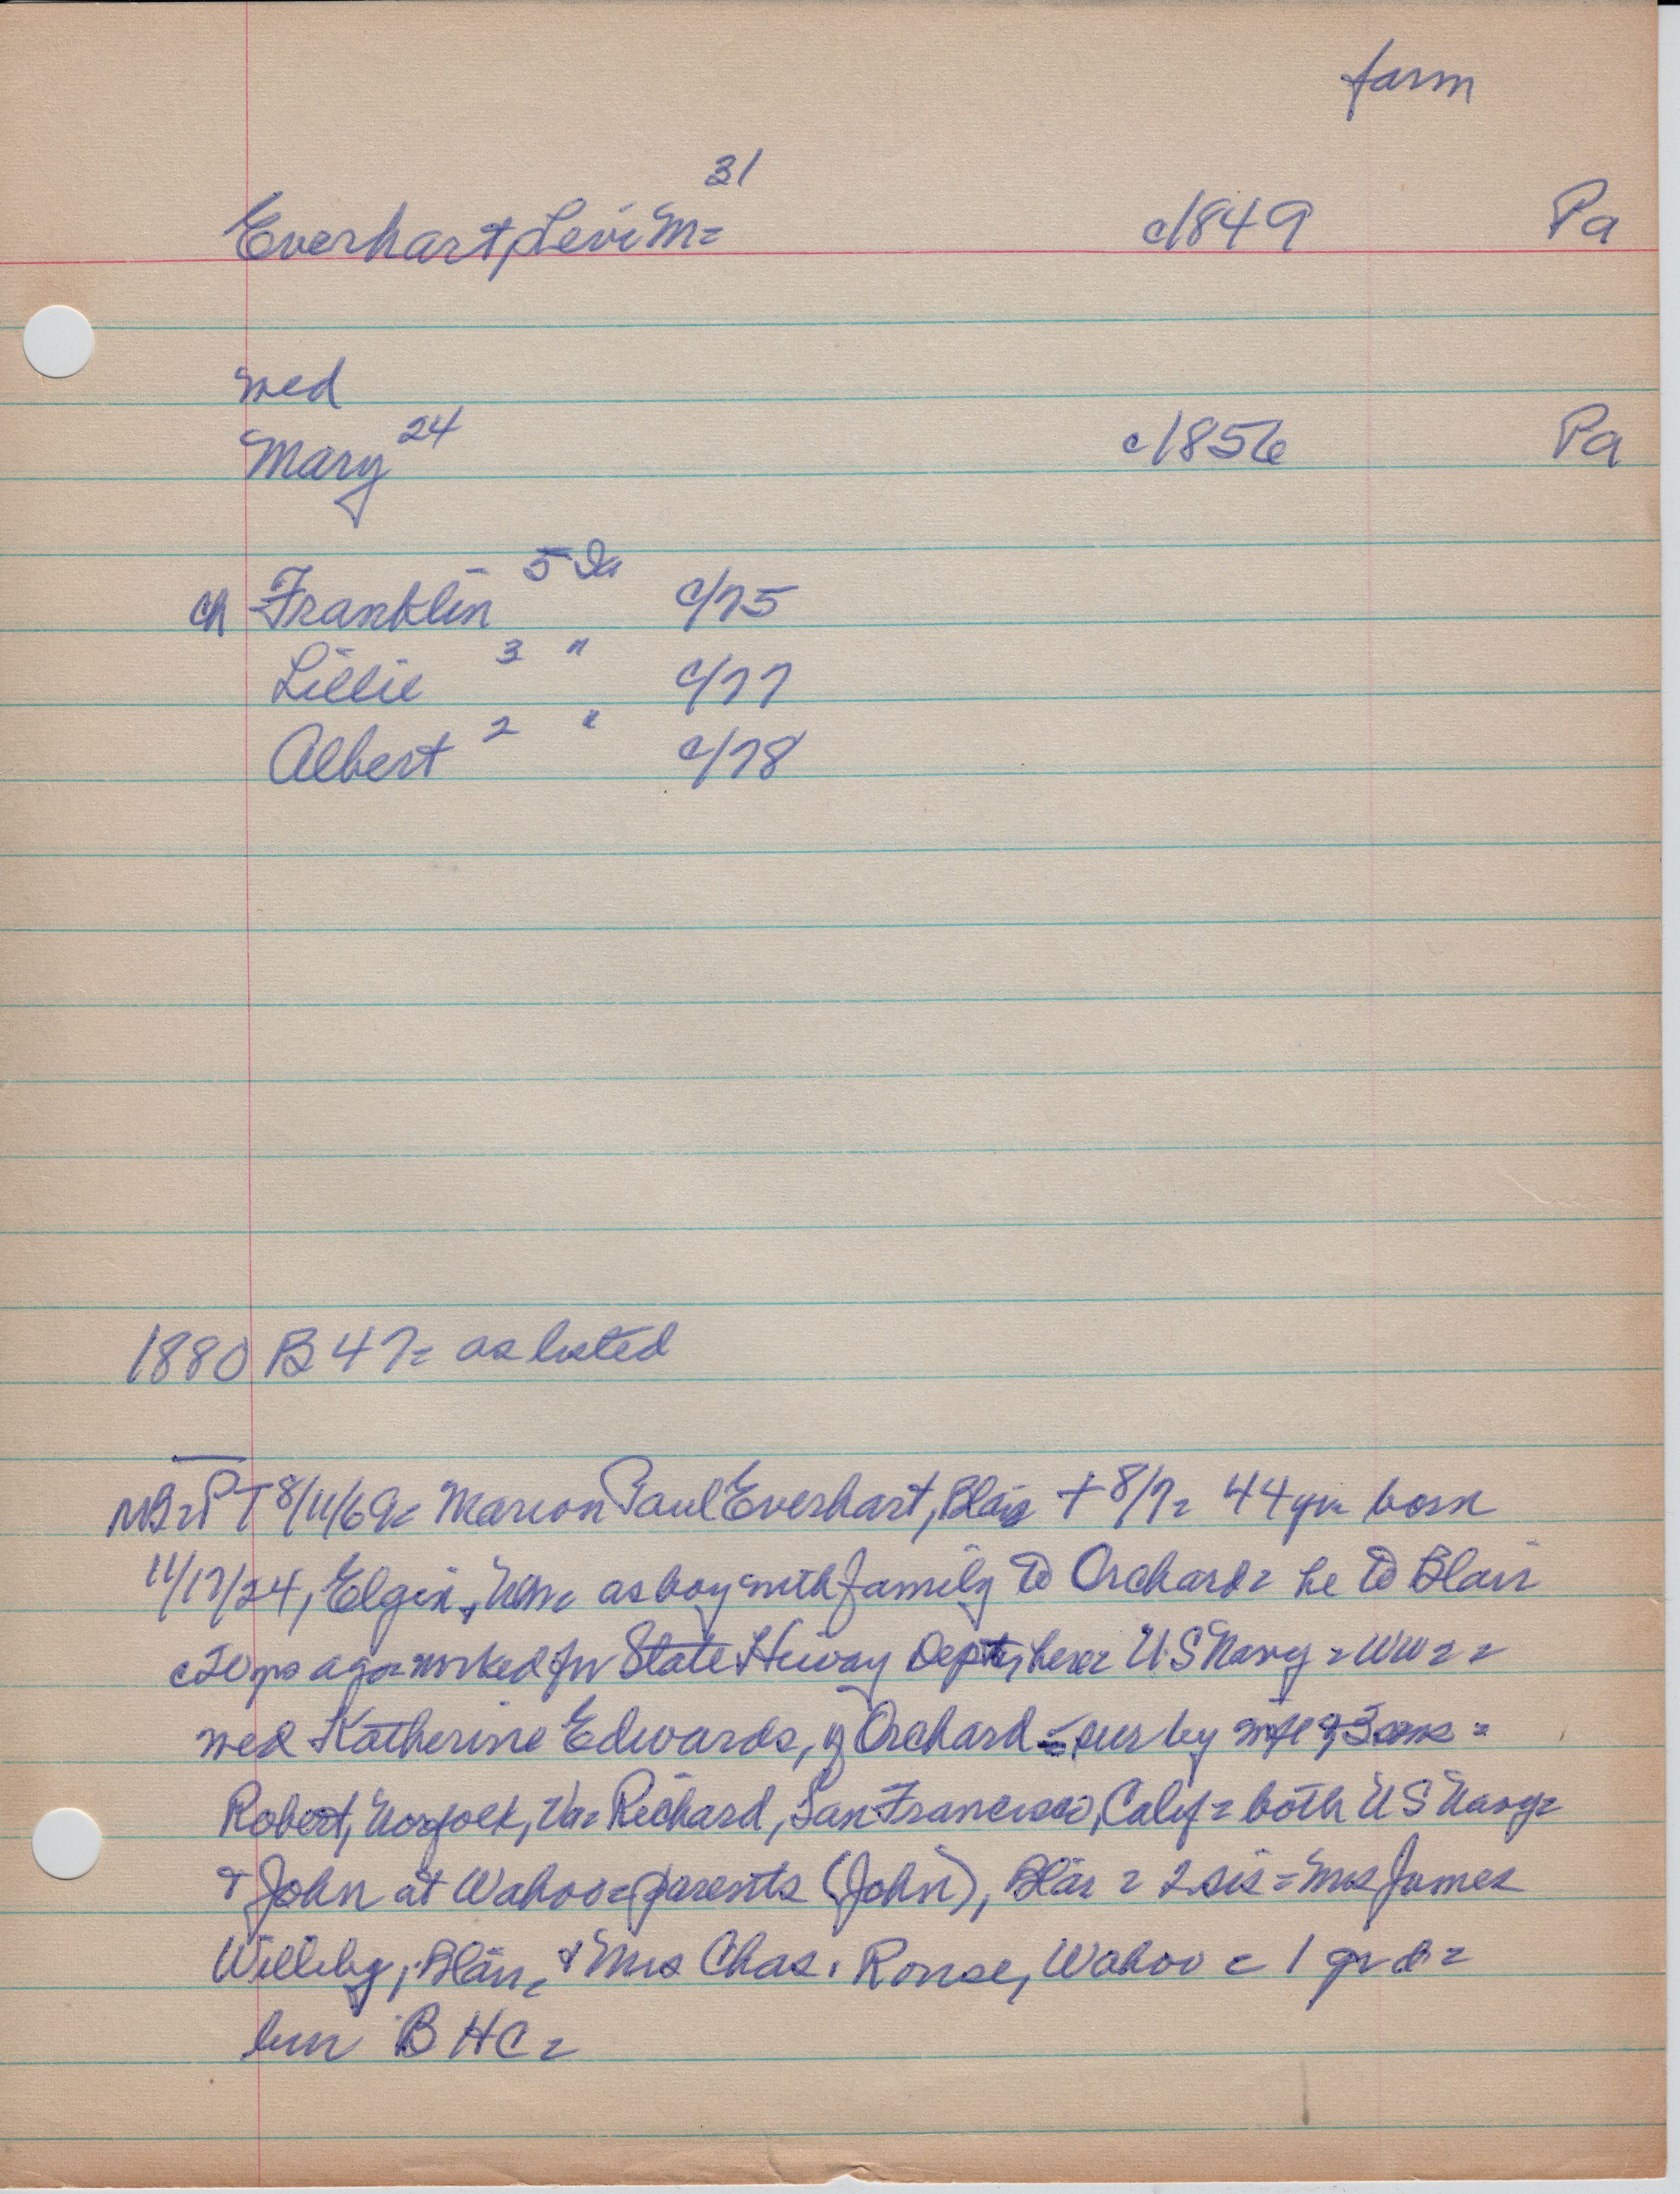 farm
31
Everhart, Levi M= c1849 Pa
med
Mary 24 c1856 Pa
ch Franklin 5 Ia c/75
Lillie 3 " c/77
Albert 2 " c/78
1880 B 47= as listed
8/11/69= Marion Paul Everhart, Blair + 8/7= 44 yrs born
11/17/24, Elgin, as boy with family to Orchard= he to Blair
c20 yrs ago= worked for State Hiway Dept, here= U S Navy = WW2 =
med Katherine Edwards, of Orchard = sur by wife & 3 sons =
Robert, Norfolk, Va= Richard, San Francisco, Calif = both U S Navy=
& John at Wahoo= parents (John), Blair = 2 sis = Mrs James
Blair, & Mrs Chas. Wahoo = 1 gr d =
bur B H C =